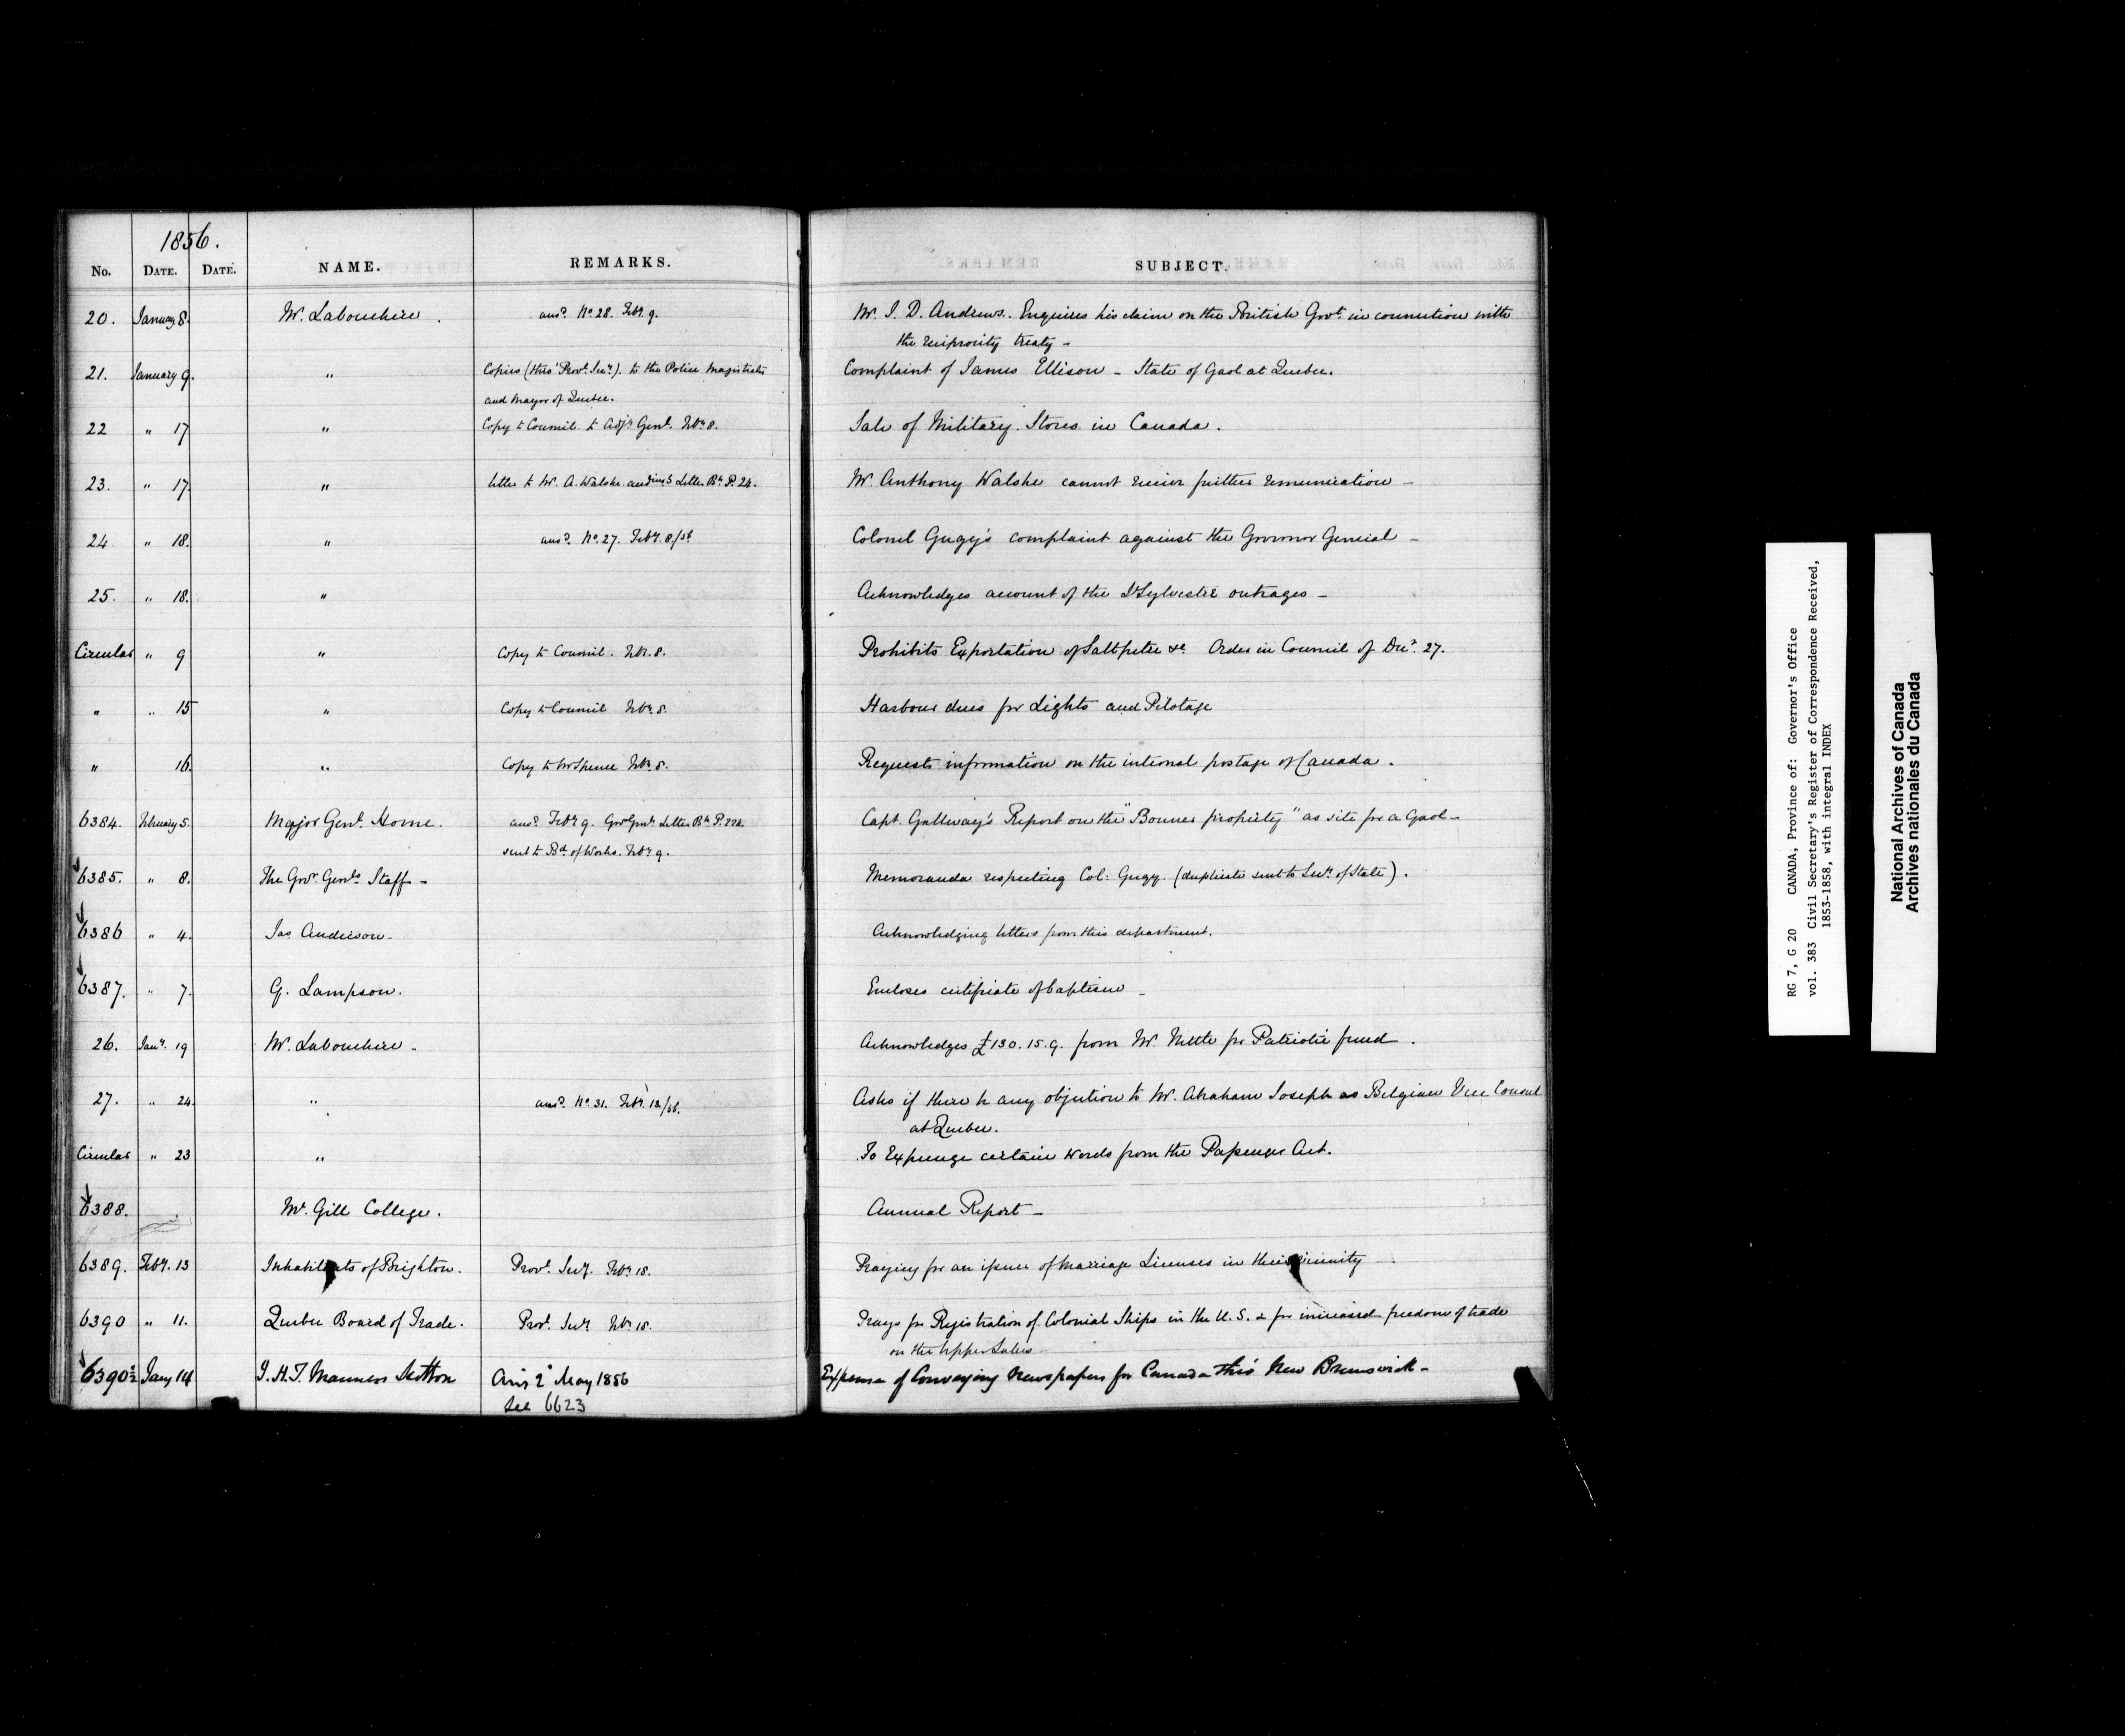 1856.
No. DATE. DATE. NAME. REMARKS. SUBJECT.
20. January 8. Mr. Labouchere. ansd. No. 28. Feby. 9. Mr. I. D. Andrews. Enquires his claim on the British Govt. in connection with
the reciprocity treaty –
21. January 9. " Copies (thro' Provl. Secy.) to the Police Magistrate Complaint of James Ellison – State of Gaol at Quebec.
and Mayor of Quebec.
22 " 17 " Copy to Council to Adjt. Genl. Feby. 8. Sale of Military Stores in Canada.
23. " 17. " letter to Mr. A. Walshe. Letter Bk. P. 24. Mr. Anthony Walshe cannot receive further remuneration –
24 " 18. " ansd. No. 27. Feby. 8/56 Colonel Gugy's complaint against the Governor General –
25. " 18. " Acknowledges account of the St Sylvestre outrages –
Circular " 9 " Copy to Council. Feby. 8. Prohibits Exportation of Saltpetre &c Order in Council of Decr. 27.
" " 15 " Copy to Council Feby. 8. Harbour dues for Lights and Pilotage
" 16. " Copy to Mr Spence Feby. 8. Requests information on the internal postage of Canada.
6384. February 5. Major Genl. Home. ansd. Feby. 9. Govr Genls Letter Bk. P. 224. Capt. Gallwey's Report on the "Bonner property" as site for a Gaol –
sent to Bd. of Works. Feby. 9.
6385. " 8. The Govr. Genls. Staff – Memoranda respecting Col: Gugy. (duplicate sent to Secy. of State).
6386 " 4. Jas Anderson. Acknowledging letters from this department.
6387. " 7. G. Lampson. Encloses certificate of baptism –
26. Jany. 19 Mr. Labouchere – Acknowledges £130.15.9. from Mr. Nettle for Patriotic fund.
27. " 24. " ansd. No. 31. Feby. 12/56. Asks if there be any objection to Mr. Abraham Joseph as Belgian Vice Consul
at Quebec.
Circular " 23 " To Expunge certain words from the Passenger Act.
6388. Mc. Gill College. Annual Report –
6389. Feby. 13 Inhabitants of Brighton. Provl. Secy. Feby. 18. Praying for an issuer of Marriage Licenses in their vicinity
6390 " 11. Quebec Board of Trade. Provl. Secy. Feby. 18. Prays for Registration of Colonial Ships in the U.S. & for increased freedom of trade
on the Upper Lakes
6390½ Jany 14 J. H. T. Manners Sutton Ansd 2d May 1856 Expense of Conveying Newspapers for Canada thro' New Brunswick –
See 6623
RG 7, G 20 CANADA, Province of: Governor's Office
vol. 383 Civil Secretary's Register of Correspondence Received,
1853-1858, with integral INDEX
National Archives of Canada
Archives nationales du Canada